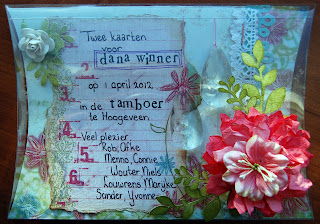 Twee kaarten
voor
dana winner
2.
op 1 april 2012
3.
in de tamboer
4.
te Hoogeveen
Veel plezier,
5.
Rob, Ofke
Menno, Connie
6.
Wouter Niels
Louwrens Marijke
Sander, Yvonne